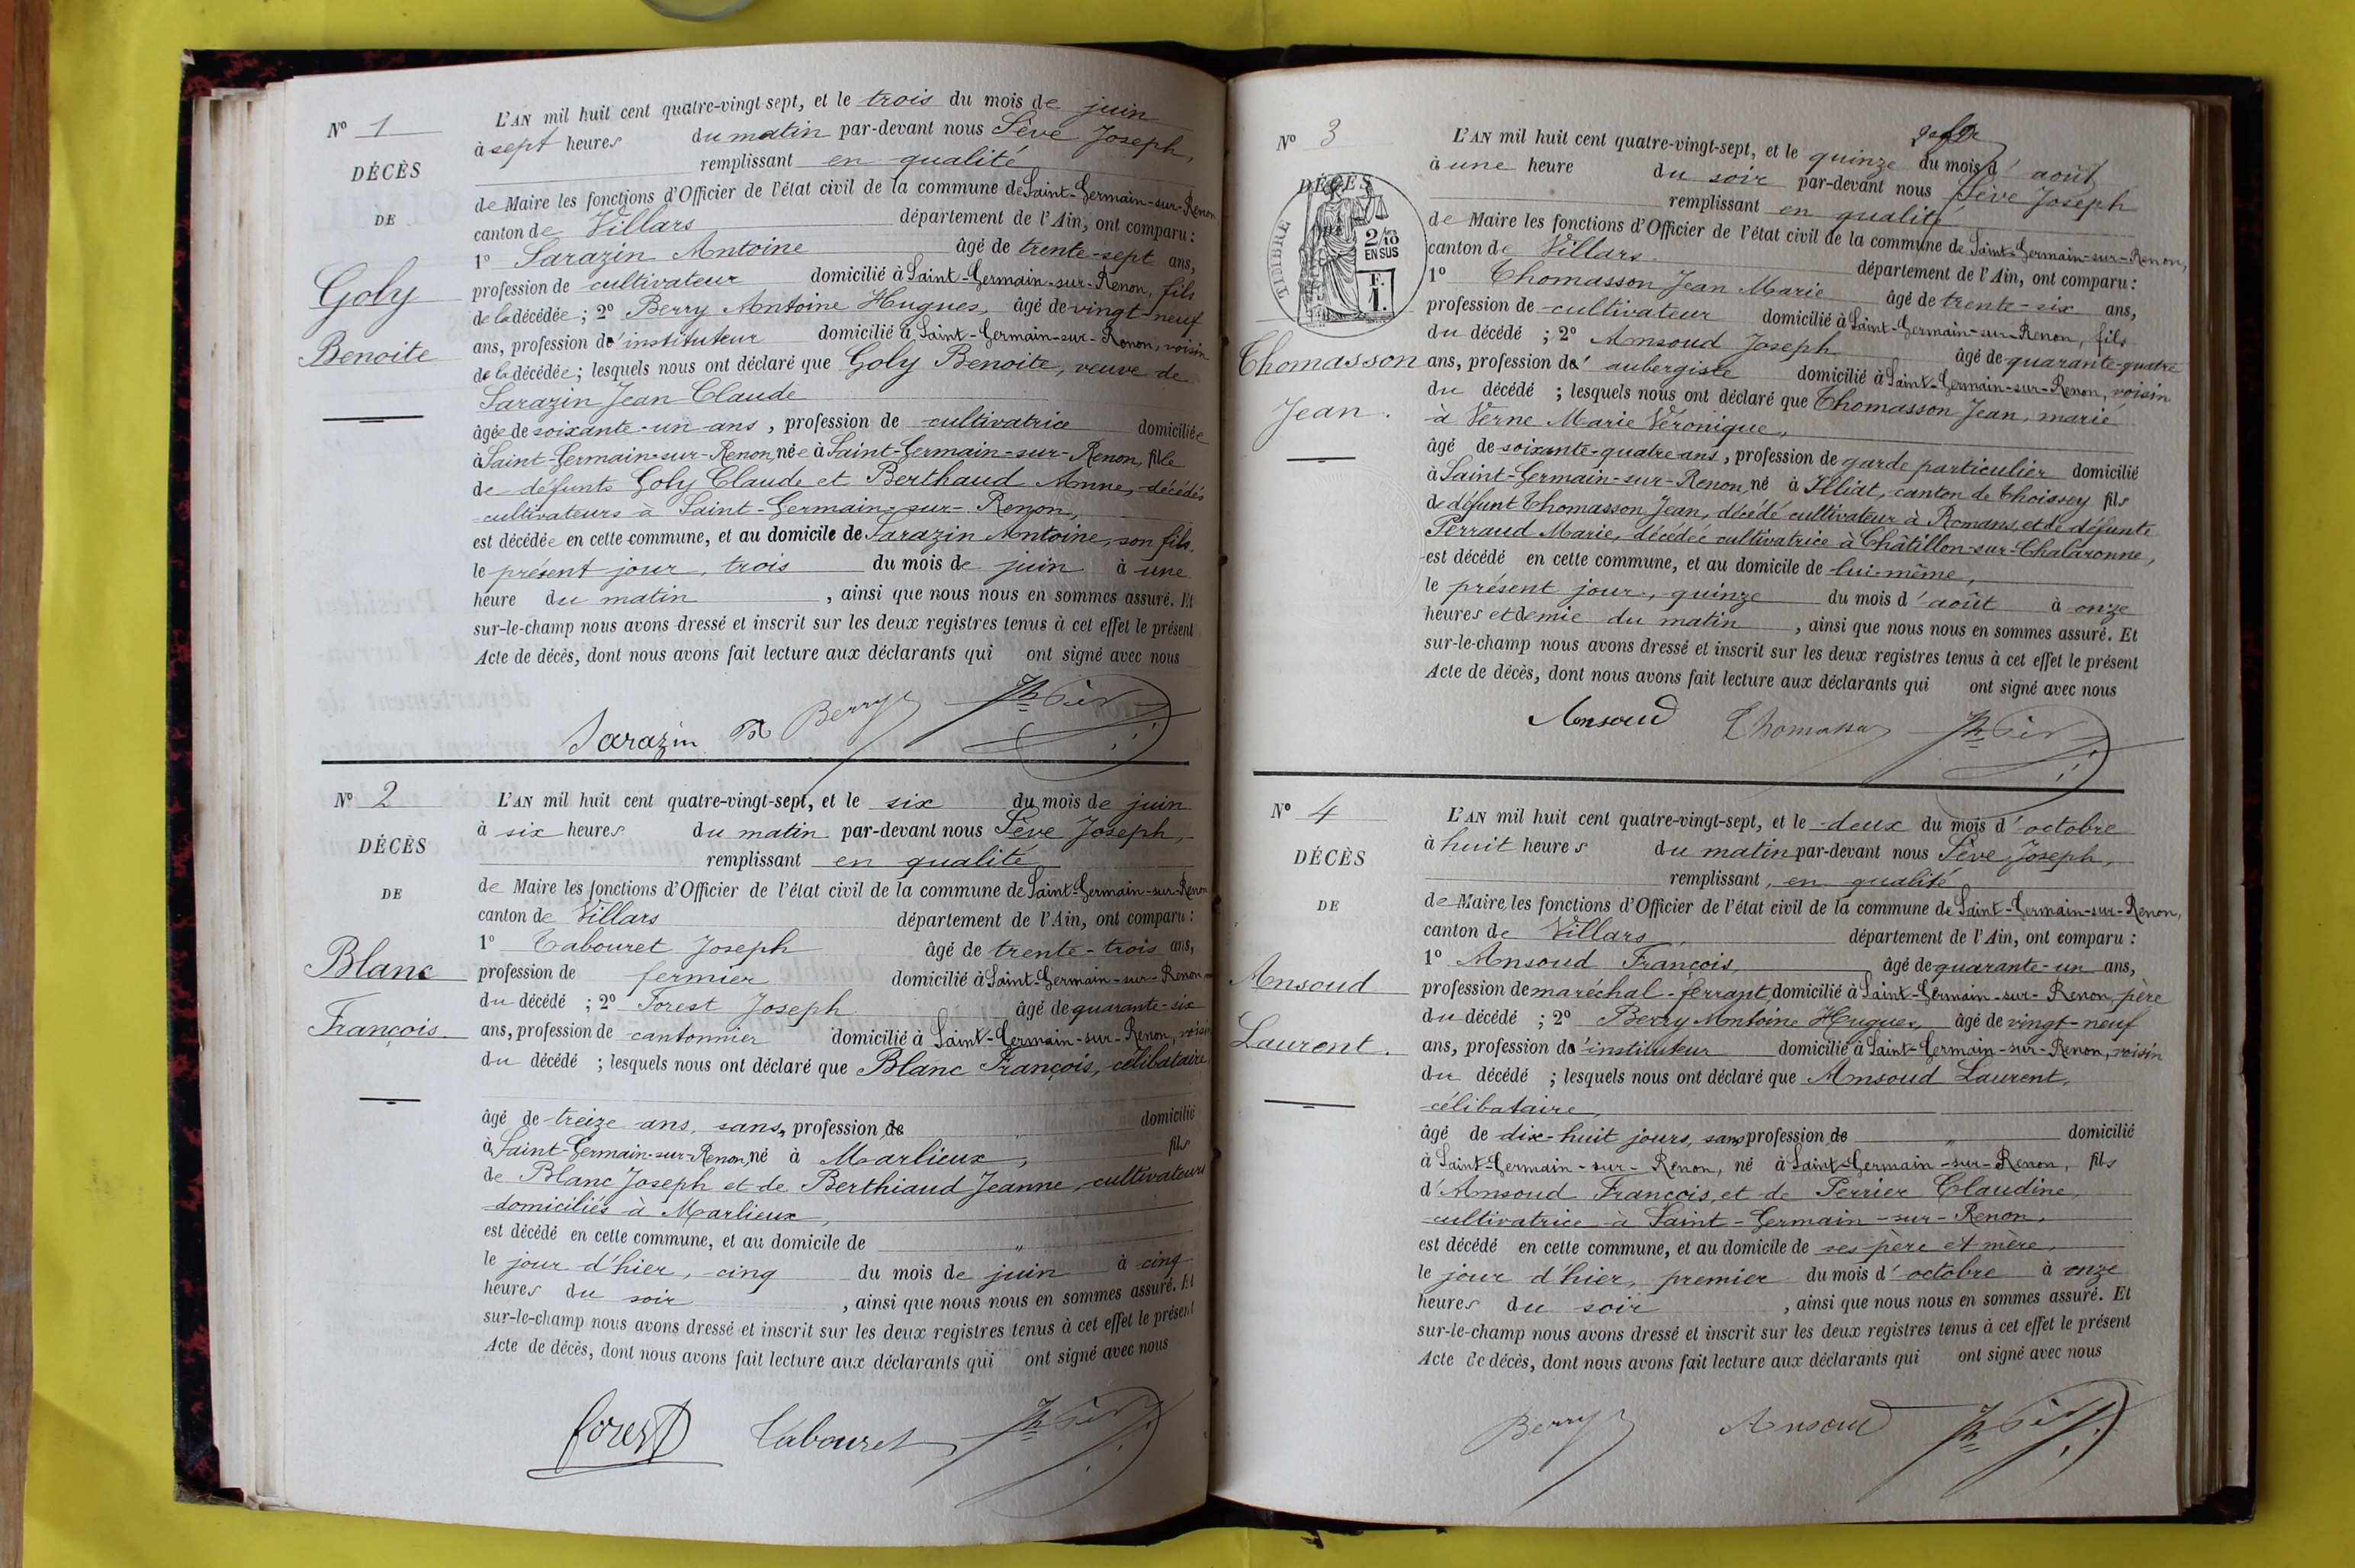 N° 1
DÉCÈS
DE
Goly
Benoite
L'AN mil huit cent quatre-vingt-sept, et le trois du mois de juin
à sept heures du matin par-devant nous Sève Joseph,
remplissant en qualité
de Maire les fonctions d'Officier de l'état civil de la commune de Saint-Germain-sur-Renon
canton de Villars département de l'Ain, ont comparu :
1° Sarazin Antoine âgé de trente-sept ans,
profession de cultivateur domicilié à Saint-Germain-sur-Renon, fils
de la décédée ; 2° Berry Antoine Hugues, âgé de vingt-neuf
ans, profession d'instituteur domicilié à Saint-Germain-sur-Renon, voisin
de la décédée ; lesquels nous ont déclaré que Goly Benoite, veuve de
Sarazin Jean-Claude
âgée de soixante-un ans, profession de cultivatrice domiciliée
à Saint-Germain-sur-Renon, née à Saint-Germain-sur-Renon, fille
de défunts Goly Claude et Berthaud Anne, décédés
cultivateurs à Saint-Germain-sur-Renon,
est décédée en cette commune, et au domicile de Sarazin Antoine, son fils,
le présent jour, trois du mois de juin à une
heure du matin, ainsi que nous nous en sommes assuré. Et
sur-le-champ nous avons dressé et inscrit sur les deux registres tenus à cet effet le présent
Acte de décès, dont nous avons fait lecture aux déclarants qui ont signé avec nous
Sarazin Berry Jh Sève
N° 2
DÉCÈS
DE
Blanc
François
L'AN mil huit cent quatre-vingt-sept, et le six du mois de juin
à six heures du matin par-devant nous Sève Joseph,
remplissant en qualité
de Maire les fonctions d'Officier de l'état civil de la commune de Saint-Germain-sur-Renon
canton de Villars département de l'Ain, ont comparu :
1° Tabouret Joseph âgé de trente-trois ans,
profession de fermier domicilié à Saint-Germain-sur-Renon
du décédé ; 2° Forest Joseph âgé de quarante-six
ans, profession de cantonnier domicilié à Saint-Germain-sur-Renon, voisin
du décédé ; lesquels nous ont déclaré que Blanc François, célibataire
âgé de treize ans, sans profession de " domicilié
à Saint-Germain-sur-Renon, né à Marlieux, fils
de Blanc Joseph et de Berthiaud Jeanne, cultivateurs
domiciliés à Marlieux,
est décédé en cette commune, et au domicile de "
le jour d'hier, cinq du mois de juin à cinq
heures du soir, ainsi que nous nous en sommes assuré. Et
sur-le-champ nous avons dressé et inscrit sur les deux registres tenus à cet effet le présent
Acte de décès, dont nous avons fait lecture aux déclarants qui ont signé avec nous
Forest Tabouret Jh Sève
N° 3
DÉCÈS
TIMBRE
2/10
EN SUS
F.
1.
Thomasson
Jean.
L'AN mil huit cent quatre-vingt-sept, et le quinze du mois d'août
à une heure du soir par-devant nous Sève Joseph
remplissant en qualité
de Maire les fonctions d'Officier de l'état civil de la commune de Saint-Germain-sur-Renon,
canton de Villars département de l'Ain, ont comparu :
1° Thomasson Jean Marie âgé de trente-six ans,
profession de cultivateur domicilié à Saint-Germain-sur-Renon, fils
du décédé ; 2° Ansoud Joseph âgé de quarante-quatre
ans, profession d'aubergiste domicilié à Saint-Germain-sur-Renon, voisin
du décédé ; lesquels nous ont déclaré que Thomasson Jean, marié
à Verne Marie Véronique,
âgé de soixante-quatre ans, profession de garde particulier domicilié
à Saint-Germain-sur-Renon, né à Illiat, canton de Thoissey fils
de défunt Thomasson Jean, décédé cultivateur à Romans, et de défunte
Perraud Marie, décédée cultivatrice à Châtillon-sur-Chalaronne,
est décédé en cette commune, et au domicile de lui-même,
le présent jour, quinze du mois d'août à onze
heures et demie du matin, ainsi que nous nous en sommes assuré. Et
sur-le-champ nous avons dressé et inscrit sur les deux registres tenus à cet effet le présent
Acte de décès, dont nous avons fait lecture aux déclarants qui ont signé avec nous
Ansoud Thomasson Jh Sève
N° 4
DÉCÈS
DE
Ansoud
Laurent.
L'AN mil huit cent quatre-vingt-sept, et le deux du mois d'octobre
à huit heures du matin par-devant nous Sève Joseph,
remplissant, en qualité
de Maire, les fonctions d'Officier de l'état civil de la commune de Saint-Germain-sur-Renon,
canton de Villars département de l'Ain, ont comparu :
1° Ansoud François, âgé de quarante-un ans,
profession de maréchal-ferrant, domicilié à Saint-Germain-sur-Renon, père
du décédé ; 2° Berry Antoine Hugues, âgé de vingt-neuf
ans, profession d'instituteur domicilié à Saint-Germain-sur-Renon, voisin
du décédé ; lesquels nous ont déclaré que Ansoud Laurent,
célibataire,
âgé de dix-huit jours, sans profession de " domicilié
à Saint-Germain-sur-Renon, né à Saint-Germain-sur-Renon, fils
d'Ansoud François, et de Perrier Claudine,
cultivatrice à Saint-Germain-sur-Renon,
est décédé en cette commune, et au domicile de ses père et mère,
le jour d'hier, premier du mois d'octobre à onze
heures du soir, ainsi que nous nous en sommes assuré. Et
sur-le-champ nous avons dressé et inscrit sur les deux registres tenus à cet effet le présent
Acte de décès, dont nous avons fait lecture aux déclarants qui ont signé avec nous
Berry Ansoud Jh Sève